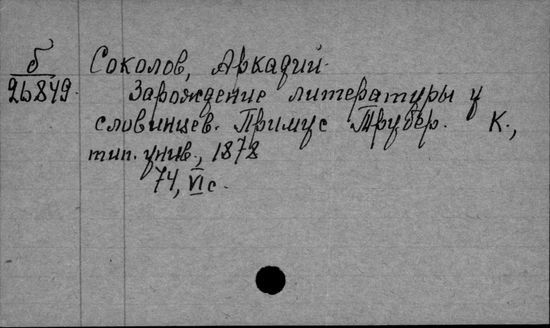 б
26849.
Соколов, Аркадий.
Зарождение литературы у
словинцев. Примус Трубер. К.,
тип. унив., 1878
74, VI с.